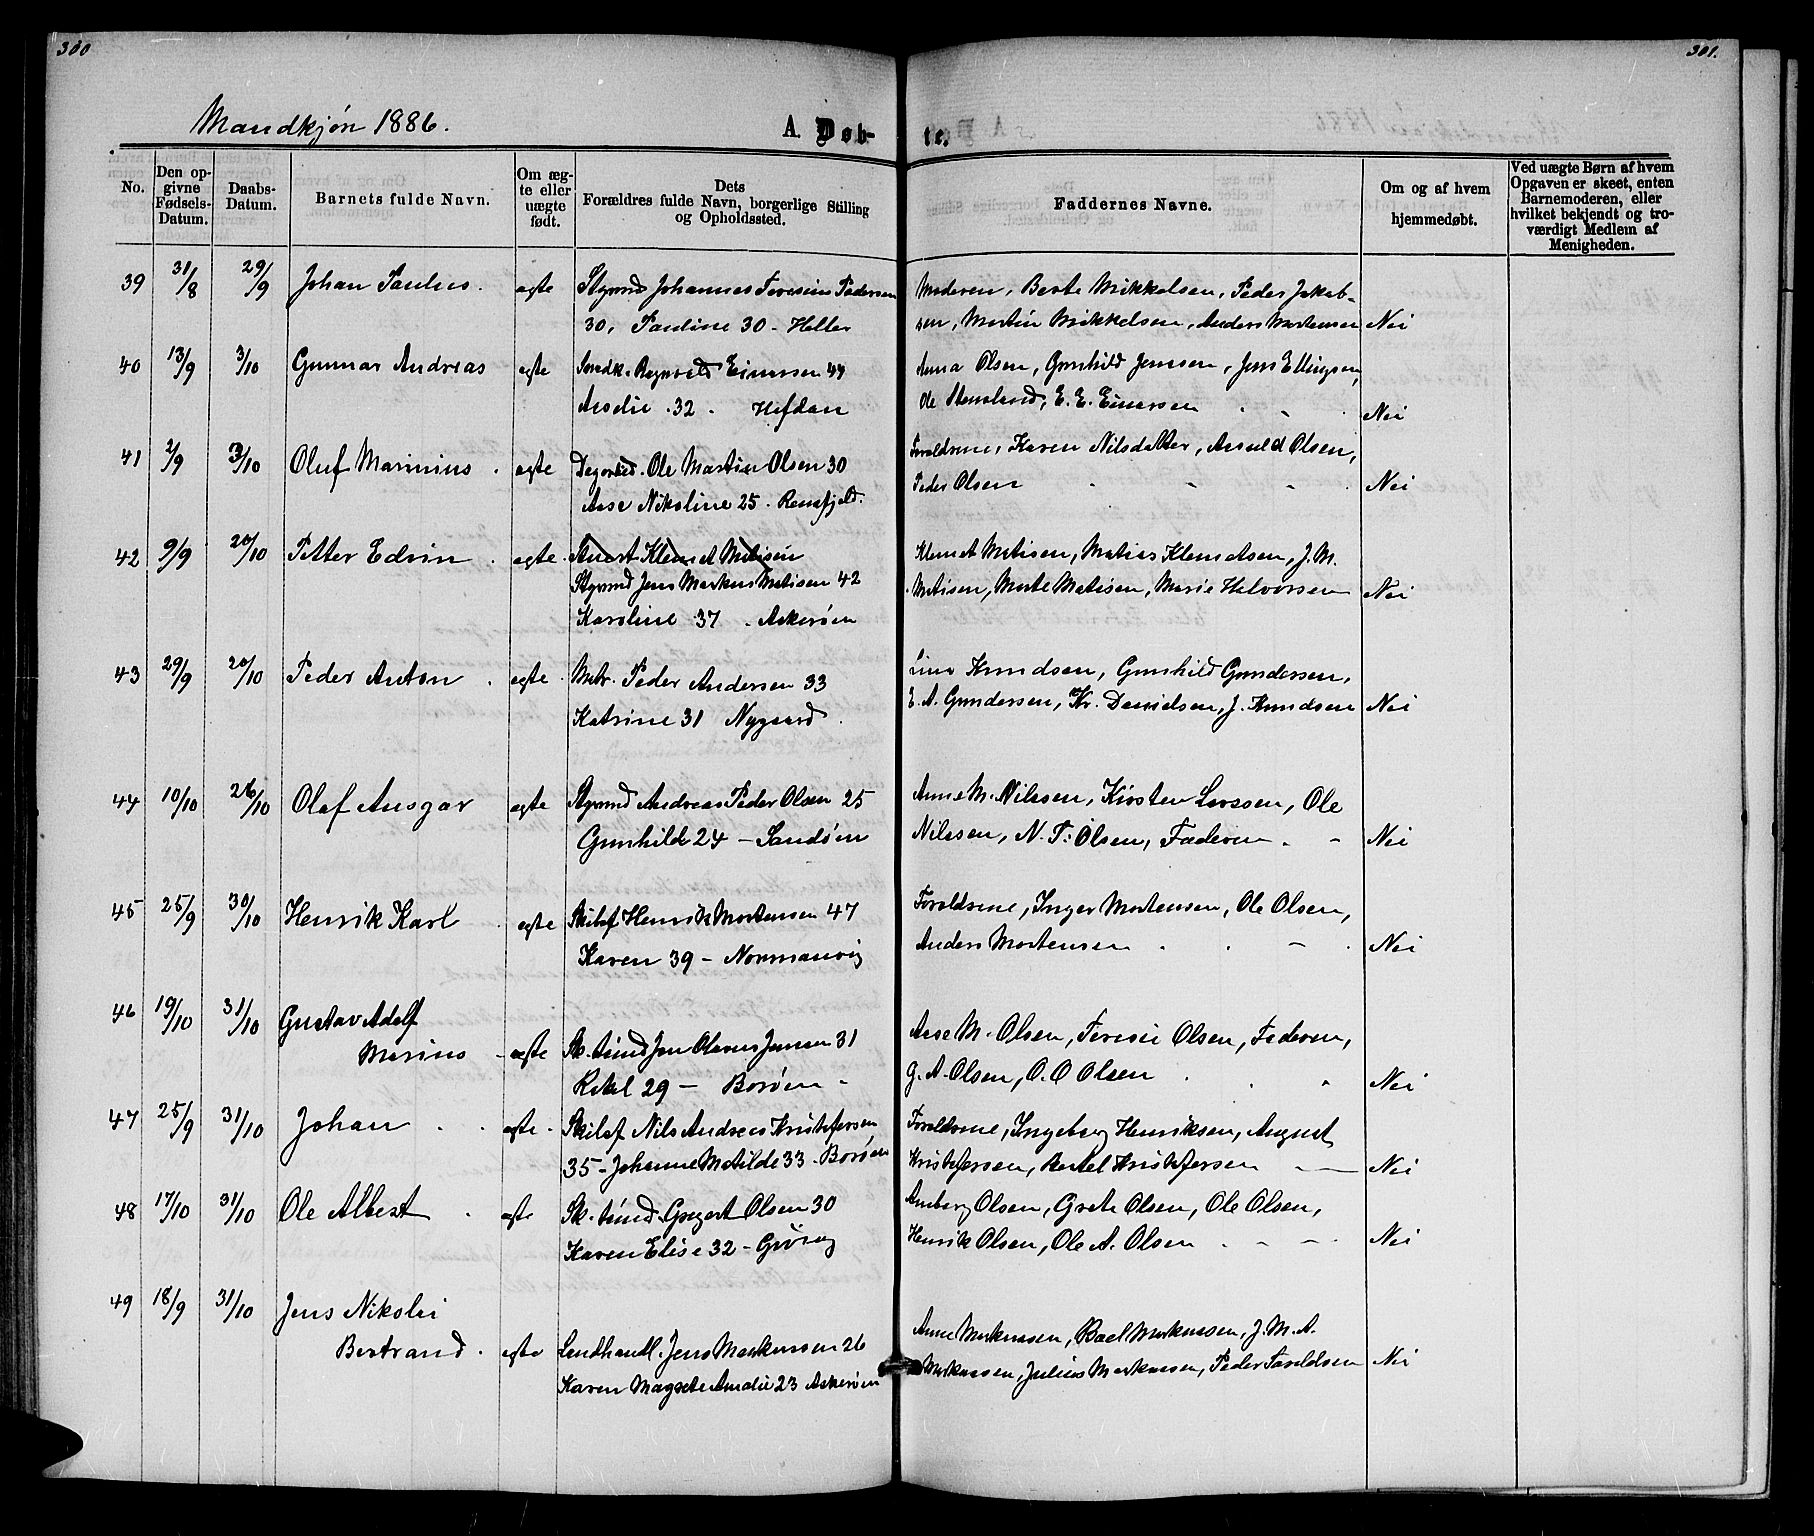 300
301.
Mandkjøn 1886.
A. Døb-
te.
No.
Den op-
givne
Fødsels-
Datum.
Daabs-
Datum.
Barnets fulde Navn.
Om æg-
te eller
uægte
født.
Dets
Forældres fulde Navn, borgerlige Stilling
og Opholdssted.
Faddernes Navne.
Om og af hvem
hjemmedøbt.
Ved uægte Børn af hvem
Opgaven er skeet, enten
Barnemoderen, eller
hvilket bekjendt og tro-
værdigt Medlem af
Menigheden.
39 31/8 29/9 Johan Paulus. ægte Styrmd Johannes Feresius Pedersen
30, Pauline 30 - Heller
Moderen, Berte Mikkelsen, Peder Jakob-
sen, Martin Mikkelsen, Anders Mortensen Nei
40 13/9 3/10 Gunnar Andreas ægte Einersen 44
Amelie . 32 . Hefdan
Anna Olsen, Gunhild Jenssen, Jens Ellingsen,
Ole Stensland, E. E. Einersen - - Nei
41 2/9 3/10 Oluf Marinius . ægte Ole Martin Olsen 30
Aase Nikoline 25 . Rensfjeld.
Forældrene, Karen Nilsdatter, Arnold Olsen,
Peder Olsen - - - Nei
42 9/9 20/10 Petter Edvin . ægte. Klemet Matisen
Styrmd Jens Markus Matisen 42
Karoline 37 . Askerøen
Klemet Matisen, Matias Klemetsen, J. M.
Matisen, Marte Matisen, Marie Halvorsen Nei
43 29/9 20/10 Peder Anton . ægte . Matr. Peder Andersen 33
Katrine 31 Nygaard .
Lina Knudsen, Gunhild Gundersen,
E. A. Gundersen, Kr. Danielsen, J. Knudsen Nei
44 10/10 26/10 Olaf Ansgar ægte Styrmd Andreas Peder Olsen 25
Gunhild 24 - Sandøen
Anne M. Nilssen, Kirsten Larssen, Ole
Nilssen, N. P. Olsen, Faderen . - Nei
45 25/9 30/10 Henrik Karl . ægte Skibsf Henrik Mortensen 47
Karen 39 - Normanvig
Forældrene, Inger Mortensen, Ole Olsen,
Anders Mortensen . . - . Nei
46 19/10 31/10 Gustav Adolf
Marius - ægte Sk. tømd Jon Olavus Jensen 31
Rakel 29 - Borøen -
Aase M. Olsen, Teresie Olsen, Faderen,
G. A. Olsen, O. O Olsen . . . Nei
47 25/9 31/10 Johan . . ægte . Skibsf Nils Andreas Kristofersen
35 - Johanne Matilde 33 - Borøen
Forældrene, Ingeborg Henriksen, August
Kristofersen, Bertel Kristofersen - - Nei
48 17/10 31/10 Ole Albert . ægte Sk. tømd Gregert Olsen 30
Karen Elise 32 - Grøsvig
Amberg Olsen, Grete Olsen, Ole Olsen,
Henrik Olsen, Ole A. Olsen . - - . Nei
49 18/9 31/10 Jens Nikolai
Bertrand . ægte Landhandl. Jens Markussen 26
Karen Magrete Amalie 23 Askerøen
Anne Markussen, Rael Markussen, J. M. A.
Markussen, Julius Markussen, Peder Taraldsen Nei